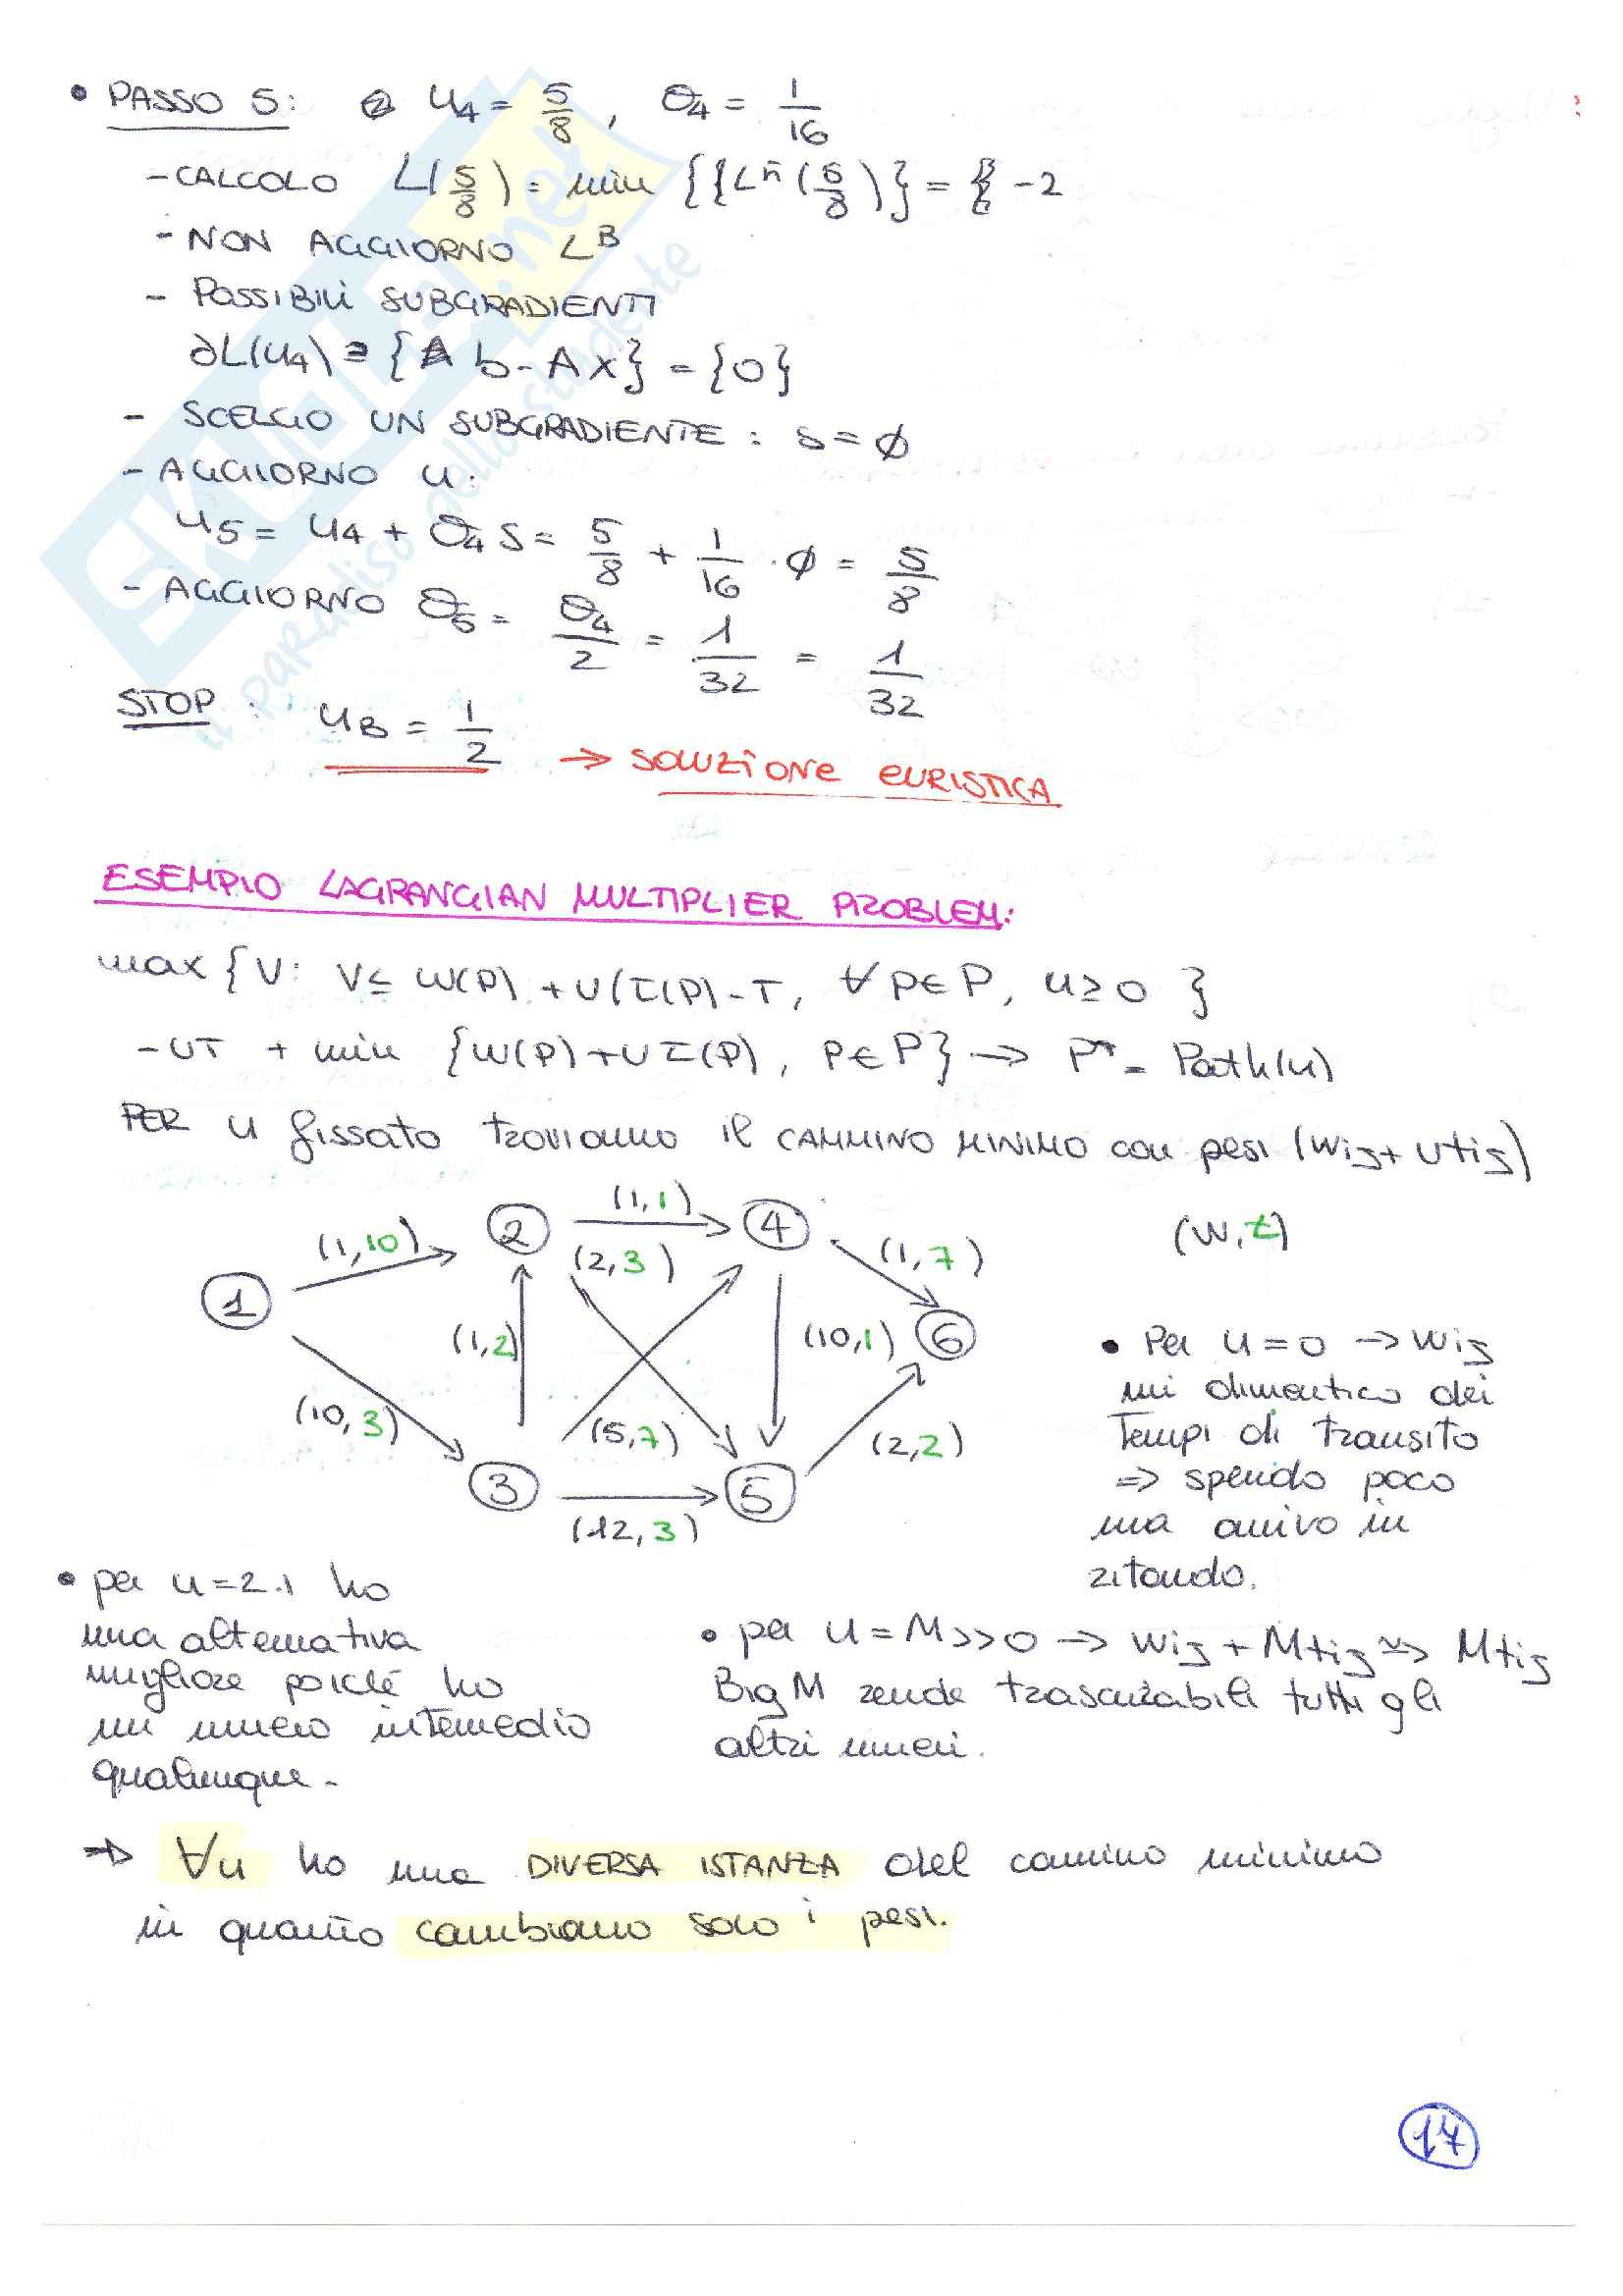 • PASSO 5: u4 = 5/8, θ4 = 1/16
- CALCOLO L(5/8) = min {{Lⁿ(5/8)} = -2
- NON AGGIORNO L^B
- POSSIBILI SUBGRADIENTI
∂L(u4) = {b - Ax} = {0}
- SCELGO UN SUBGRADIENTE: s = ∅
- AGGIORNO u:
u5 = u4 + θ4 s = 5/8 + 1/16 · ∅ = 5/8
- AGGIORNO θ5 = θ4/2 = 1/32 = 1/32
STOP: uB = 1/2 → SOLUZIONE EURISTICA
ESEMPIO LAGRANGIAN MULTIPLIER PROBLEM:
max {V: V ≤ W(P) + U(τ(P) - T, ∀ P ∈ P, u ≥ 0 }
- UT + min {W(P) + U τ(P), P ∈ P} → P* = Path(u)
PER u fissato troviamo il CAMMINO MINIMO con pesi (wij + utij)
(1,1)
(w,t)
(1,10)
2
4
(2,3)
(1,7)
1
(1,2)
(10,1)
6
(10,3)
(5,7)
(2,2)
3
5
(12,3)
• Per u = 0 → wij
mi dimentico dei
Tempi di transito
⇒ spendo poco
ma arrivo in
ritardo.
• per u = 2.1 ho
una alternativa
migliore poiché ho
un numero intermedio
qualunque.
• per u = M >> 0 → wij + Mtij ≈> Mtij
Big M rende trascurabili tutti gli
altri numeri.
⇒ ∀u ho una DIVERSA ISTANZA del camino minimo
in quanto cambiano solo i pesi.
17
SKUOLA.net
il paradiso dello studente